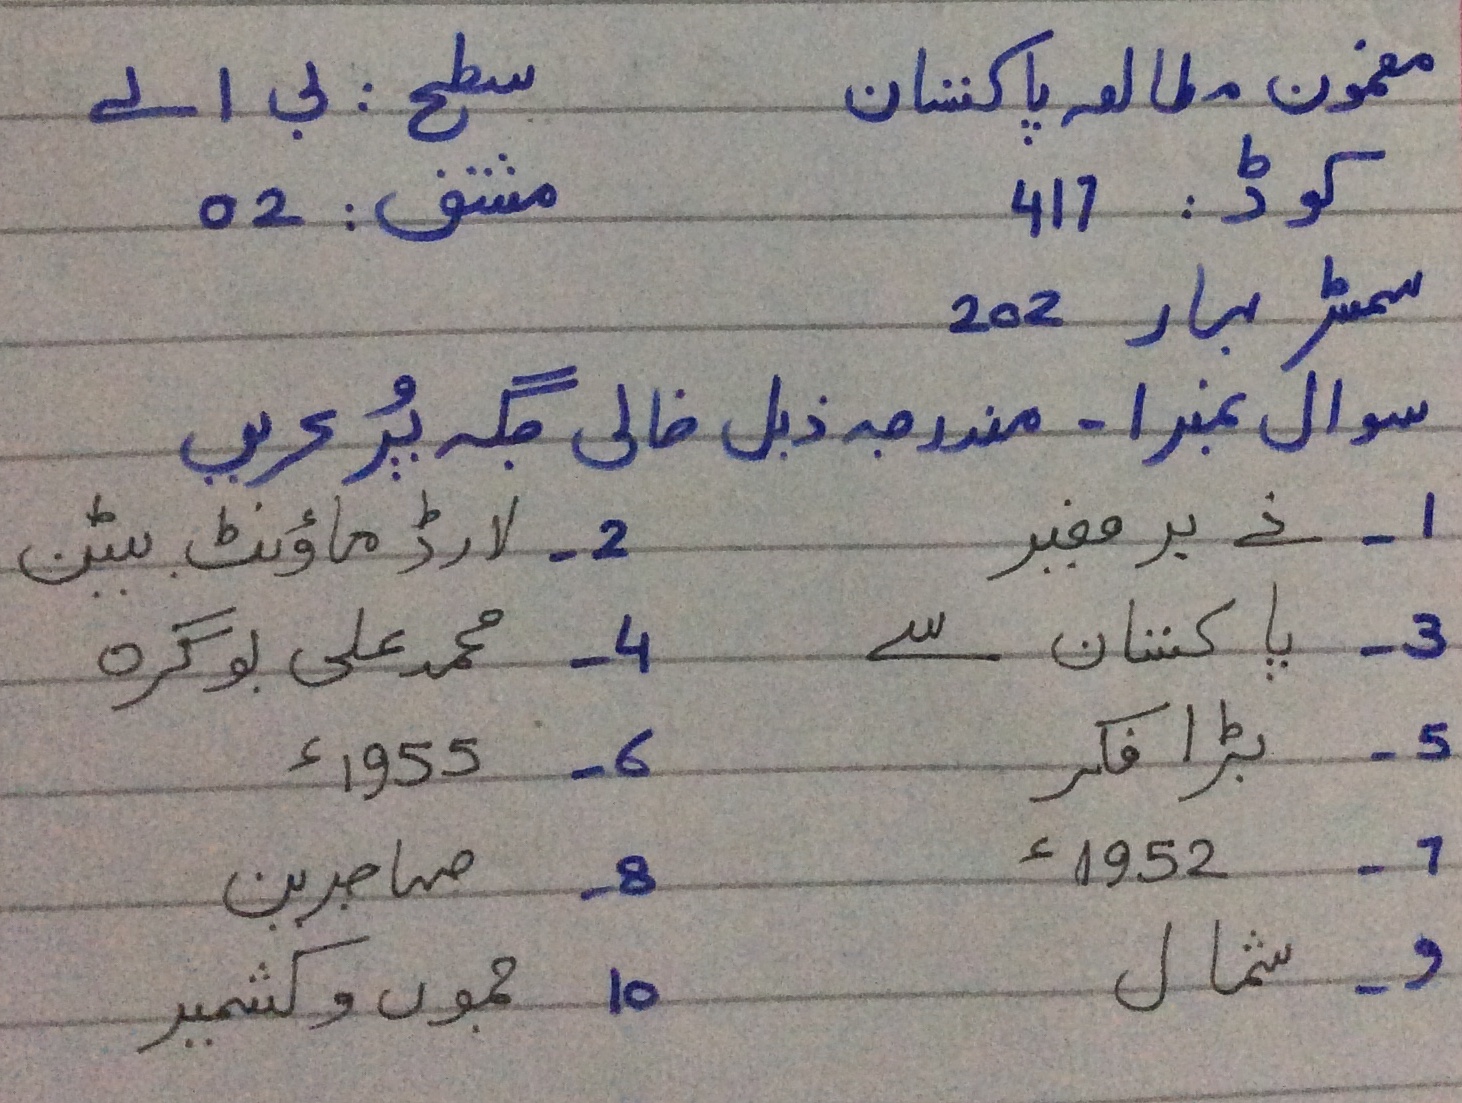 مضمون مطالعہ پاکستان سطح : بی اے
کوڈ : 417 مشق : 02
سمسٹر بہار 202
سوال نمبر 1 - مندرجہ ذیل خالی جگہ پُر کریں
1 - نے بر صغیر 2 - لارڈ ماؤنٹ بیٹن
3 - پاکستان سے 4 - محمد علی بوگرہ
5 - بڑا فکر 6 - 1955ء
7 - 1952ء 8 - مہاجرین
9 - شمال 10 جموں و کشمیر